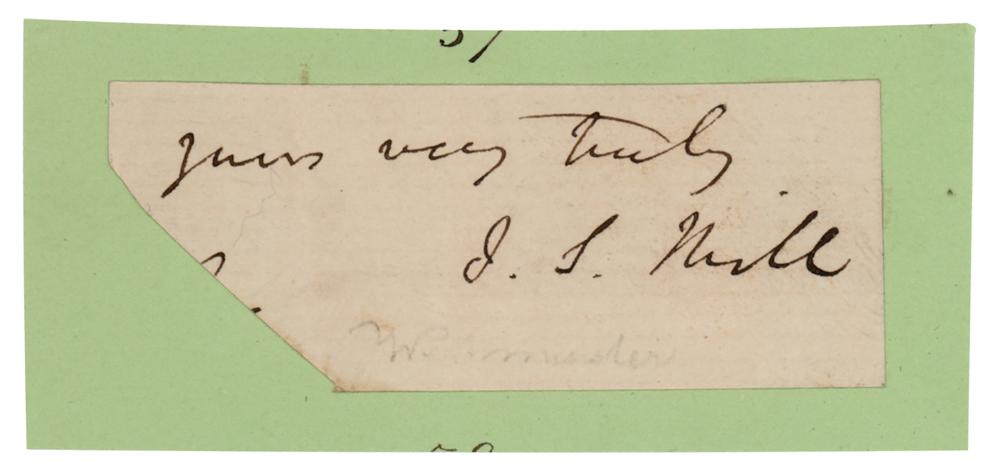 yours very truly
J. S. Mill
Westminster